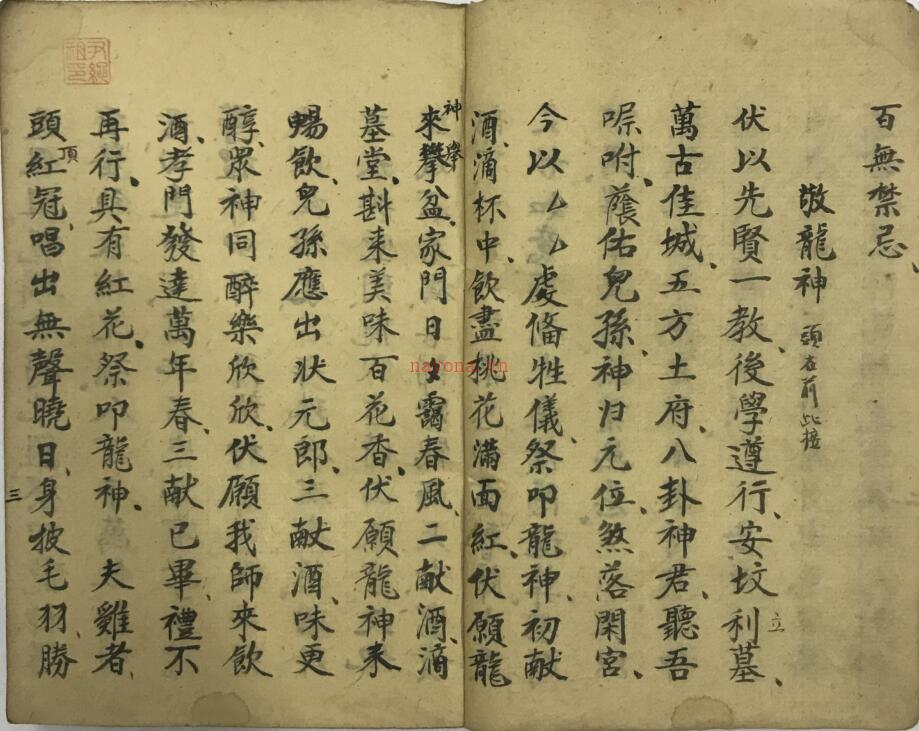 百無禁忌、
敬龍神 頭在前此擡
伏以先賢一教、後學遵行、安坟利墓、
立
萬古佳城、五方土府、八卦神君、聽吾
㖿咐、蔭佑兒孫、神归元位、煞落閑宮、
今以厶厶處俻牲儀、祭叩龍神、初献
酒、滴杯中、飲盡桃花滿面紅、伏願龍
神來攀盆、家門日日靄春風、二献酒、滴
墓堂、斟来美味百花香、伏願龍神来
暢飲、兒孫應出状元郎、三献酒、味更
醇、衆神同醉樂欣欣、伏願我師來飲
酒、孝門發達萬年春、三献已畢、禮不
再行、具有紅花、祭叩龍神、 夫雞者、
頭頂紅冠、唱出無聲曉日、身披毛羽、勝
三
nayona.cn